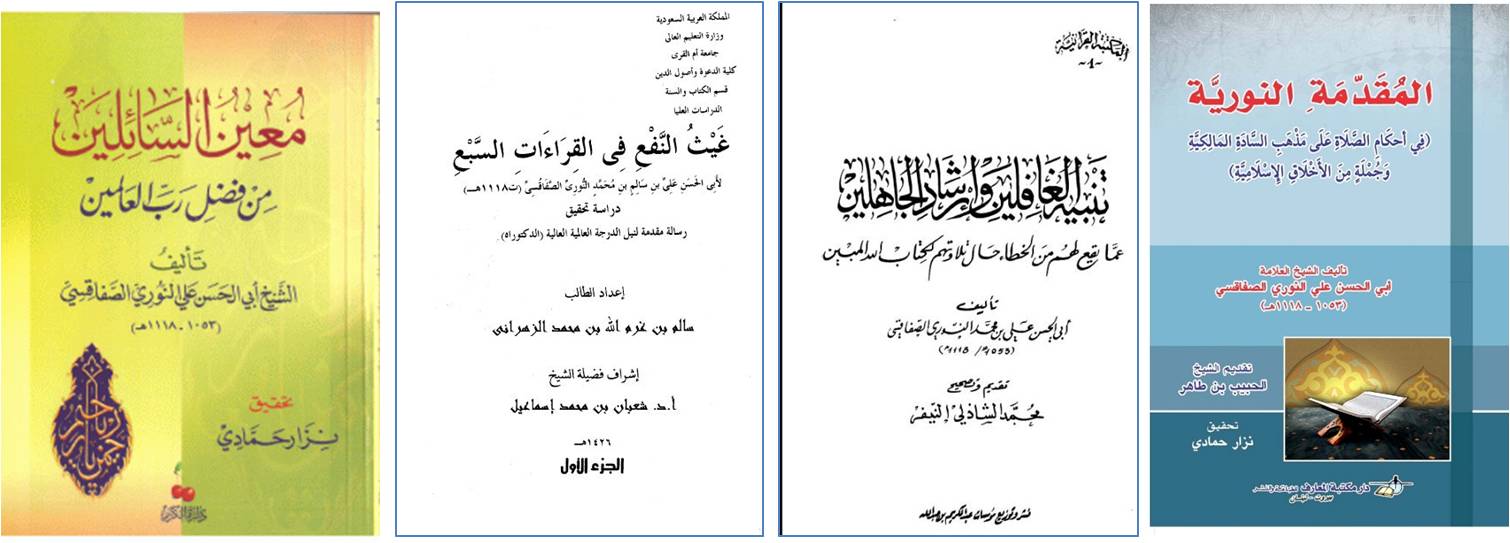 المُقَدّمَةِ النوريَّة
(فِي أَحْكَامِ الصَّلَاةِ عَلَى مَذْهَبِ السَّادَةِ المَالِكِيَّةِ
وَجُمْلَةٍ مِنَ الأَخْلَاقِ الإِسْلَامِيَّةِ)
تأليف الشيخ العلامة
أبي الحسن علي النوري الصفاقسي
(١٠٥٣ - ١١١٨هـ)
تقديم الشيخ
الحبيب بن طاهر
تحقيق
نزار حمادي
دار مكتبة المعارف
بيروت - لبنان
المكتبة القرآنية
-1-
تنبيه الغافلين وإرشاد الجاهلين
عمّا يقع لهم من الخطاء حال تلاوتهم لكتاب الله المبين
تأليف
أبي الحسن علي بن محمد النوري الصفاقسي
(1053هـ/ 1118هـ)
تقديم وتصحيح
محمد الشاذلي النيفر
نشر وتوزيع مؤسسات عبد الكريم بن عبد الله
المملكة العربية السعودية
وزارة التعليم العالى
جامعة أم القرى
كلية الدعوة وأصول الدين
قسم الكتاب والسنة
الدراسات العليا
غَيْثُ النَّفْعِ فِى القِرَاءَاتِ السَّبْعِ
لأَبِى الحَسَنِ عَلىِّ بنِ سَالِمِ بنِ مُحَمَّدِ النُّورِىِّ الصَّفَاقُسِىِّ (ت١١١٨هــ)
دراسة تحقيق
رسالة مقدمة لنيل الدرجة العالمية العالية (الدكتوراه)
إعداد الطالب
سالم بن غرم الله بن محمد الزهرانى
إشراف فضيلة الشيخ
أ.د. شعبان بن محمد إسماعيل
١٤٢٦هــ
الجزء الأول
مُعِينُ السَّائِلِينَ
مِنْ فَضْلِ رَبِّ العَالَمِينَ
تَأليفُ
الشَّيْخِ أَبِي الحَسَنِ عَلِيّ النُّورِي الصَّفَاقِسِيّ
(١٠٥٣ - ١١١٨هـ)
تحقيق
نِزَار حَمَّادِيّ